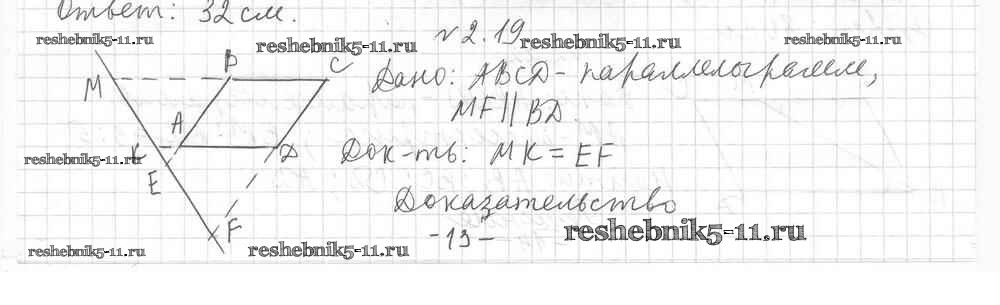 Ответ: 32 см.
№ 2.19
reshebnik5-11.ru reshebnik5-11.ru reshebnik5-11.ru reshebnik5-11.ru
M B C
Дано: ABCD - параллелограмм,
MF || BD.
A
K D
reshebnik5-11.ru
Док-ть: MK = EF
E
Доказательство
F
-13-
reshebnik5-11.ru
reshebnik5-11.ru reshebnik5-11.ru